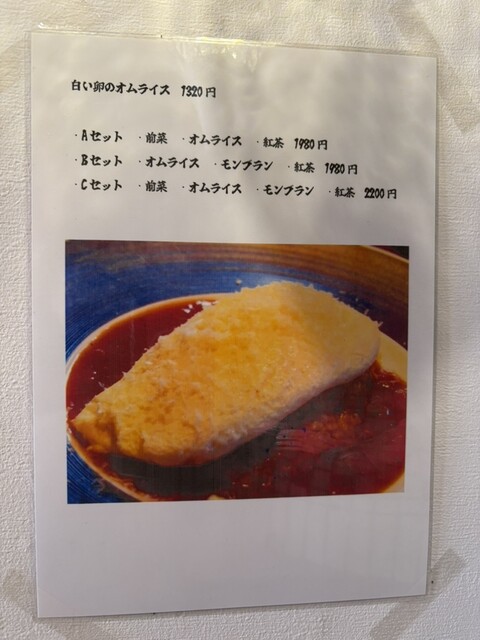 白い卵のオムライス 1320円
・Aセット ・前菜 ・オムライス ・紅茶 1980円
・Bセット ・オムライス ・モンブラン ・紅茶 1980円
・Cセット ・前菜 ・オムライス ・モンブラン ・紅茶 2200円